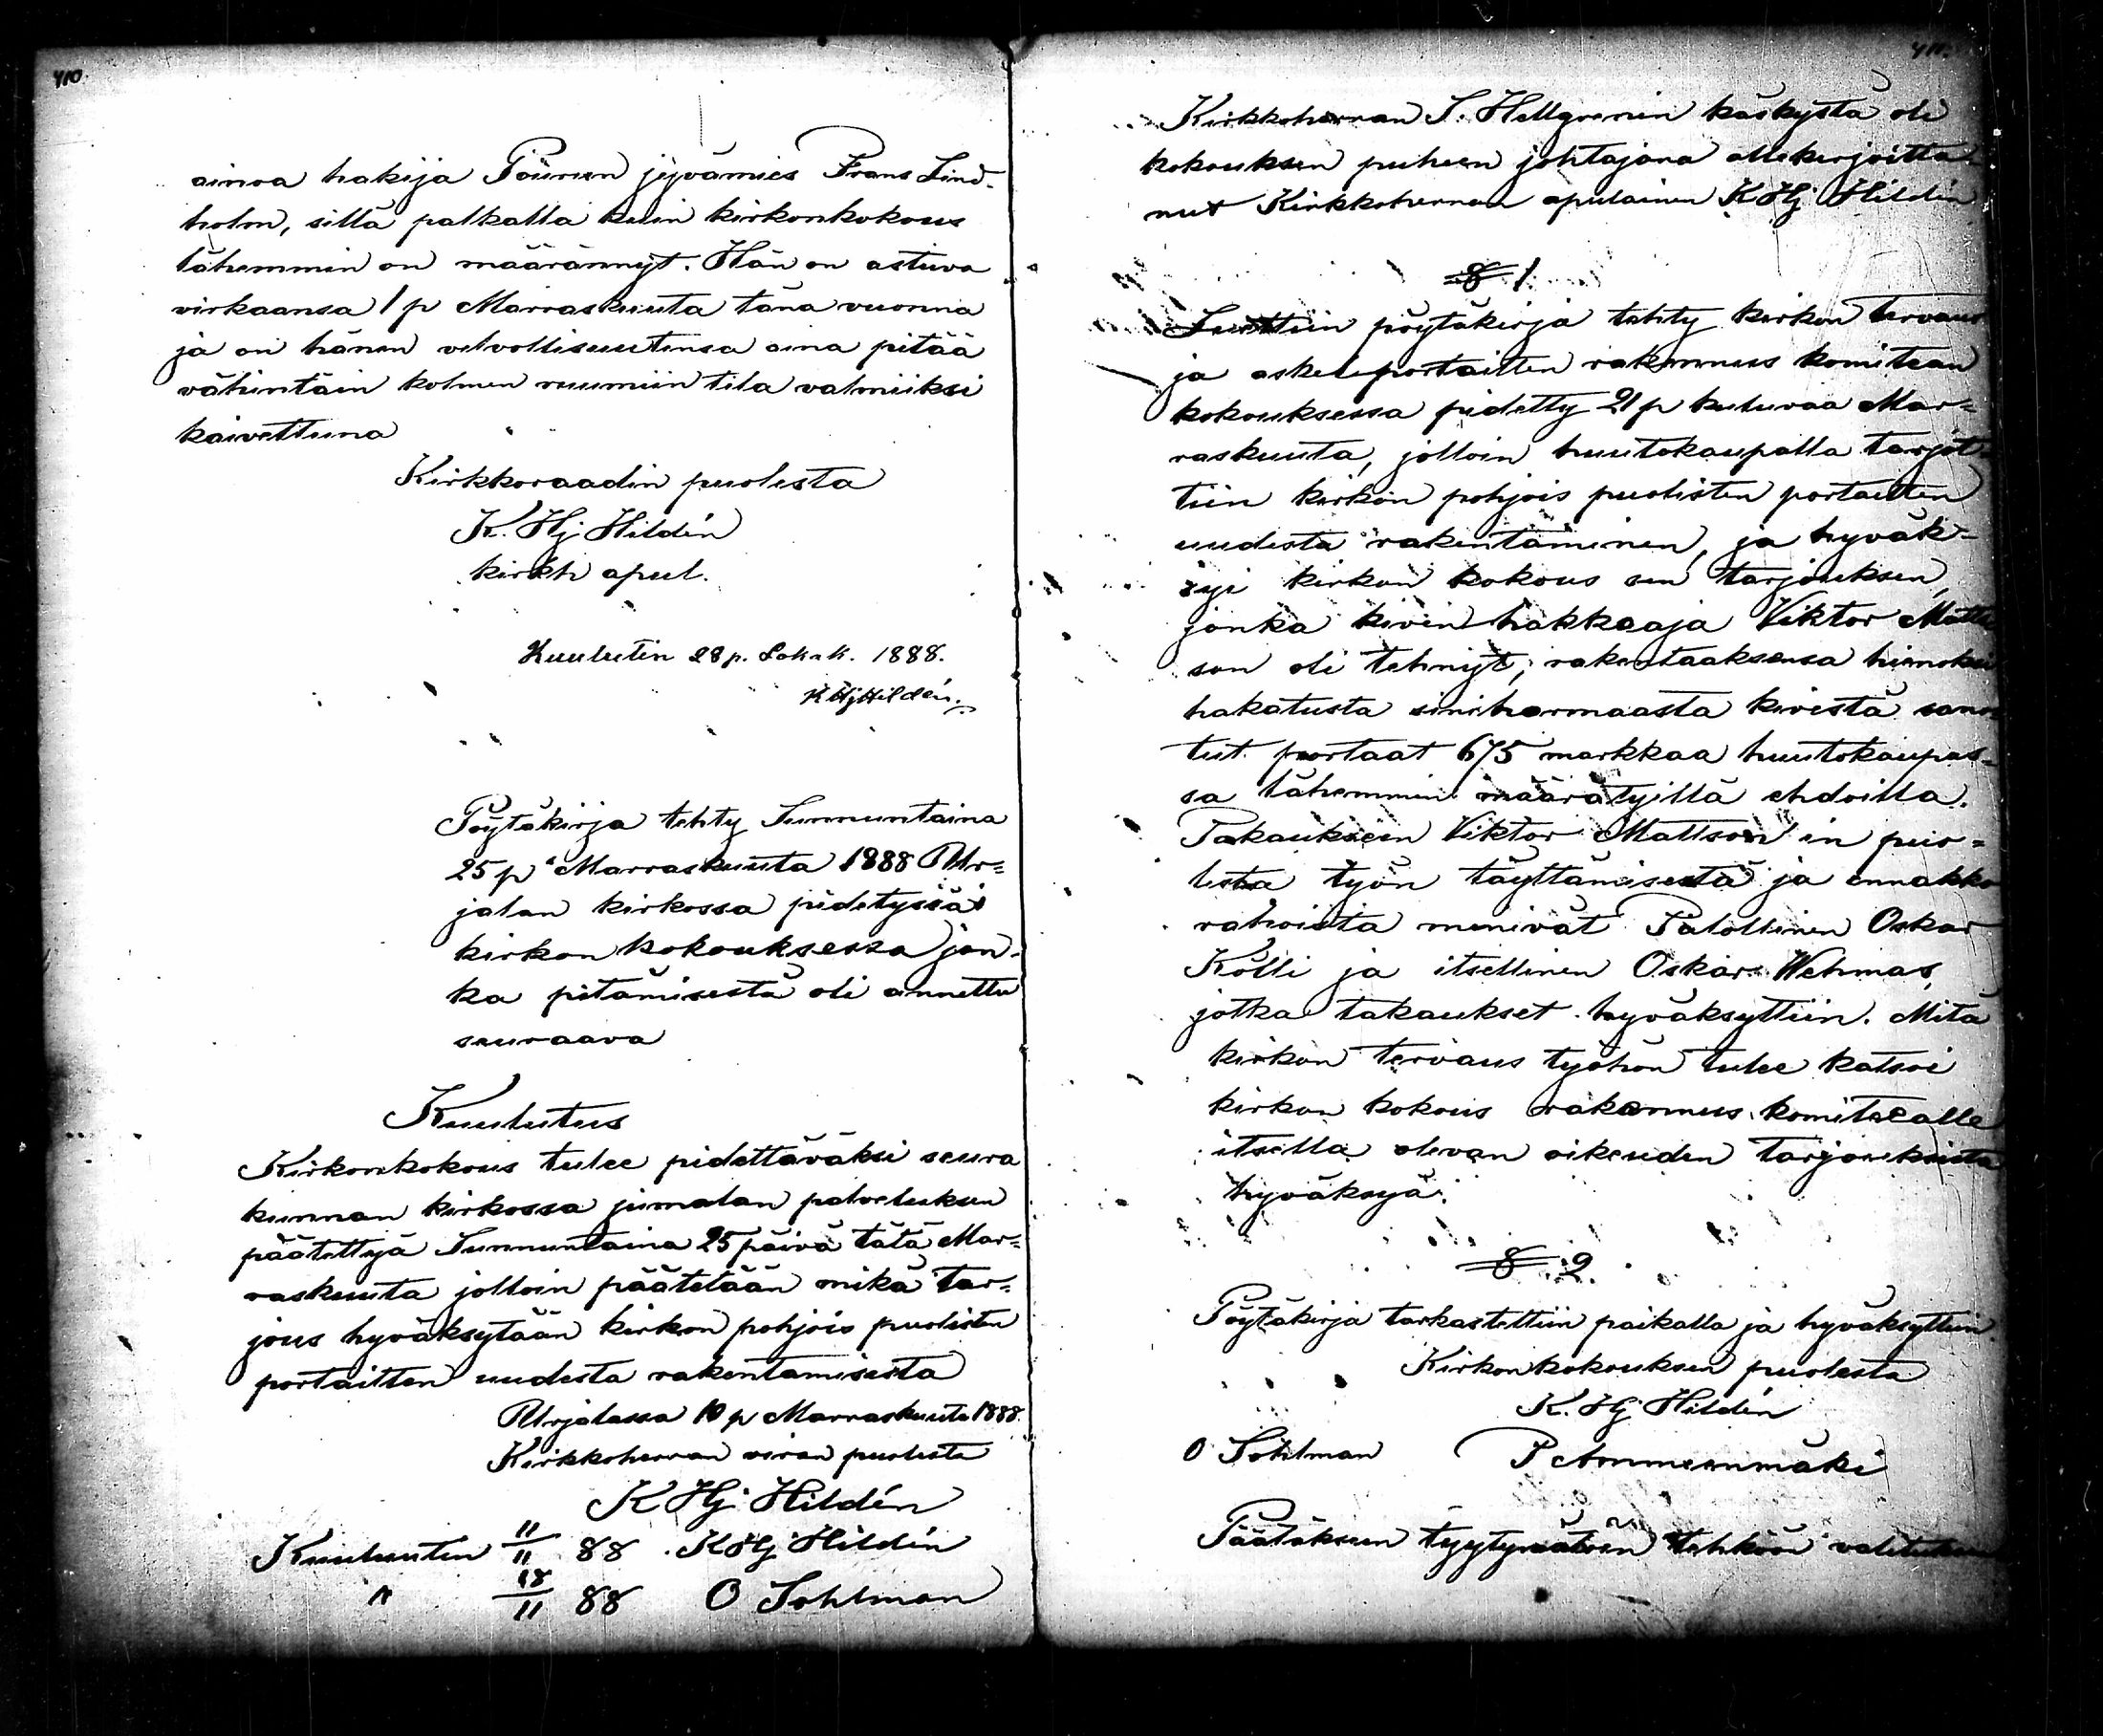 410.
ainoa hakija Pöurun jyvämies Frans Lind-
holm, sillä palkalla kuin kirkonkokous
lähemmin on määrännyt. Hän on astuva
virkaansa 1 p Marraskuuta tänä vuonna
ja on hänen velvollisuutensa aina pitää
vähintäin kolmen ruumiin tila valmiiksi
kaivettuna
Kirkkoraadin puolesta
K. Hj Hildén
kirkh apul.
Kuulutin 28 p. Lokak. 1888.
K Hj Hildén.
Pöytäkirja tehty Sunnuntaina
25 p Marraskuuta 1888 Ur=
jalan kirkossa pidetyssä
kirkon kokouksessa jon-
ka pitämisestä oli annettu
seuraava
Kuulutus
Kirkonkokous tulee pidettäväksi seura
kunnan kirkossa jumalan palveluksen
päätettyä Sunnuntaina 25 päivä tätä Mar=
raskuuta jolloin päätetään mikä tar=
jous hyväksytään kirkon pohjois puolisten
portaitten uudesta rakentamisesta
Urjalassa 10 p Marraskuuta 1888.
Kirkkoherran viran puolesta
K Hj Hildén
Kuuluutin 11/11 88. K Hj Hildén
" 18/11 88 O Sohlman
411.
Kirkkoherran S. Hellgrenin käskystä oli
kokouksen puheen johtajana allekirjoitta-
nut Kirkkoherran apulainen K Hj Hildén
§ 1
Luettiin pöytäkirja tehty kirkon tervaus
ja askeleportaitten rakennus komitean
kokouksessa pidetty 21 p kuluvaa Mar=
raskuuta, jolloin huutokaupalla tarjot-
tiin kirkon pohjois puolisten portaitten
uudesta rakentaminen, ja hyväk-
syi kirkon kokous sen tarjouksen,
jonka kivenhakkaaja Viktor Matts
son oli tehnyt, rakentaaksensa hienoksi
hakatusta siniharmaasta kivestä sano-
tut portaat 675 markkaa huutokaupas-
sa lähemmin määrätyillä ehdoilla.
Takaukseen Viktor Mattson'in puo=
lesta työn täyttämisestä ja ennakko
rahoista menivät Talollinen Oskar
Kölli ja itsellinen Oskar Wehmas,
jotka takaukset hyväksyttiin. Mitä
kirkon tervaus työhön tulee katsoi
kirkon kokous rakennus komitealle
itsellä olevan oikeuden tarjouksista
hyväksyä.
§ 2.
Pöytäkirja tarkastettiin paikalla ja hyväksyttiin.
Kirkonkokouksen puolesta
K. Hj Hildén
O Sohlman P Ammeenmäki
Päätökseen tyytymätöin tehköön valituksen